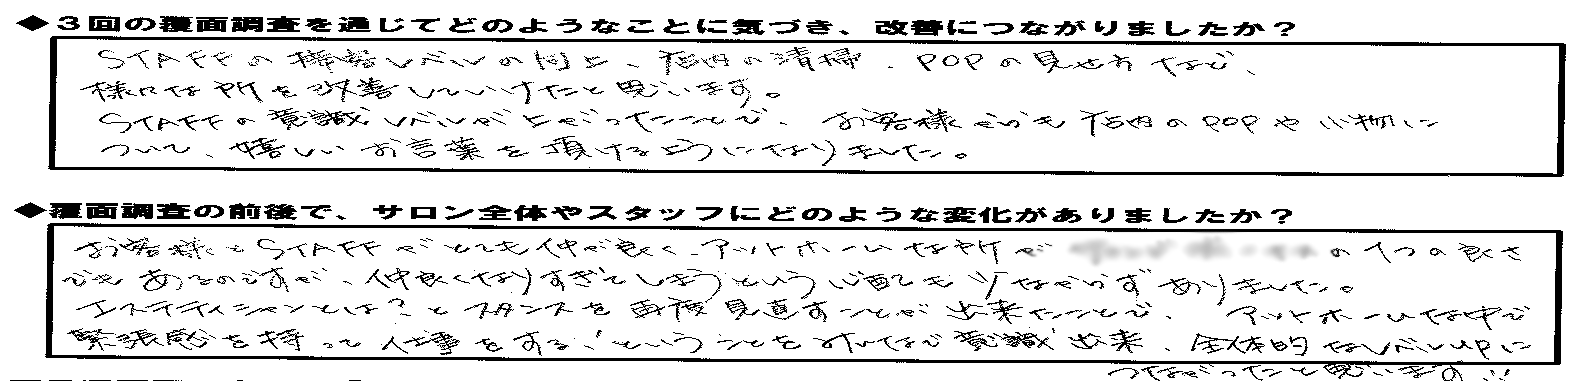 ◆３回の覆面調査を通じてどのようなことに気づき、改善につながりましたか？
STAFFの接客レベルの向上、店内の清掃、POPの見せ方など、
様々な所を改善していけたと思います。
STAFFの意識レベルが上がったことで、お客様からも店内のPOPや小物に
ついて、嬉しいお言葉を頂けるようになりました。
◆覆面調査の前後で、サロン全体やスタッフにどのような変化がありましたか？
お客様とSTAFFがとても仲が良く、アットホームな所が の1つの良さ
でもあるのですが、仲良くなりすぎてしまうという心配も少なからずありました。
エステティシャンとは？とスタンスを再度見直すことが出来たことで、アットホームな中で
緊張感を持って仕事をする！ということをみんなで意識出来、全体的なレベルupに
つながったと思います!!